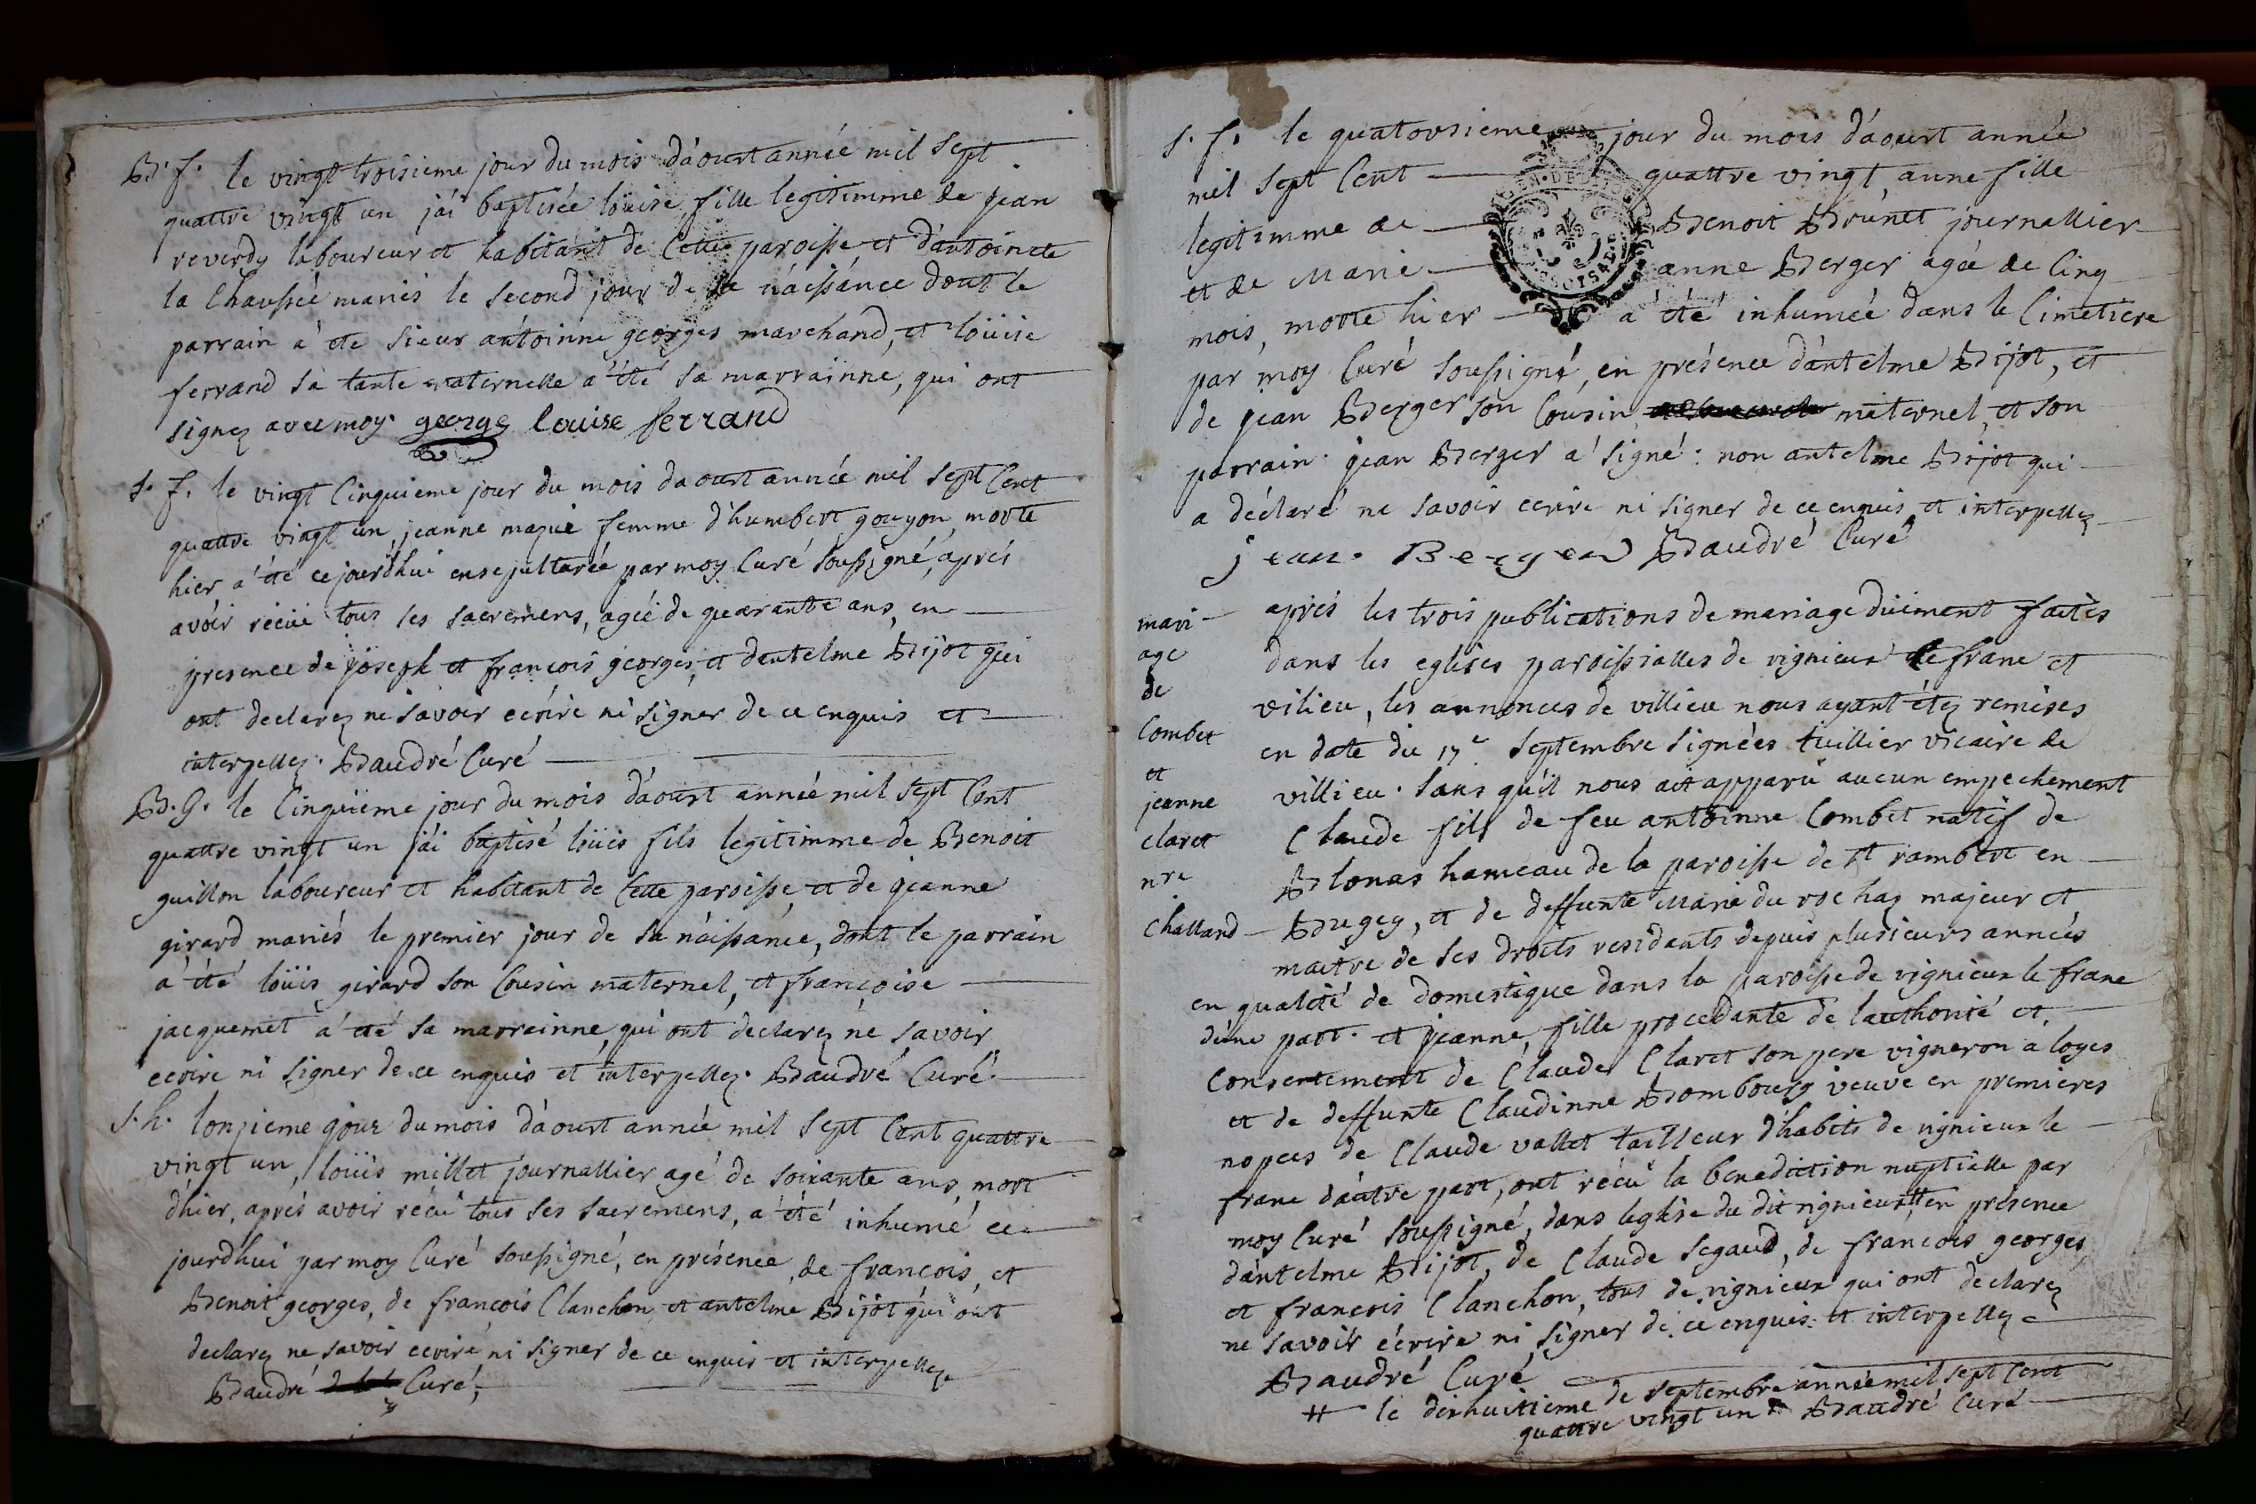 B. f. le vingt troisieme jour du mois d'aoust année mil sept
quattre vingt un j'ai baptisée loüise fille legitimme de jean
reverdy laboureur et habitant de cette paroisse et d'antoinete
la chaussée mariés le second jour de sa náissánce dont le
parrain a été sieur antoinne georges marchand, et loüise
ferrand sa tante maternelle a été sa marrainne, qui ont
signez avec moy. george louise ferrand
s. f. le vingt cinquieme jour du mois daoust année mil sept cent
quattre vingt un, jeanne mague femme d'humbert gouyon, morte
hier a été cejourd'hui ensepulturée par moy curé soussigné, aprés
avoir réçüe tous ses sacremens, agée de quarante ans, en
presence de joseph et françois georges, et dantelme Bijot qui
ont declarez ne savoir ecrire ni signer de ce enquis et
interpellez. Baudré Curé
B. G. le cinquieme jour du mois d'aoust année mil sept cent
quattre vingt un j'ai baptisé loüis fils legitimme de Benoit
guillon laboureur et habitant de cette paroisse, et de jeanne
girard mariés le premier jour de sa náissance, dont le parrain
a été loüis girard son cousin maternel, et françoise
jacquemet a été sa marrainne, qui ont declarez ne savoir
ecrire ni signer de ce enquis et interpellez. Baudré Curé.
s. h. lonzieme jour du mois d'aoust année mil sept cent quattre
vingt un, loüis millet journallier agé de soixante ans, mort
d'hier, aprés avoir récu tous ses sacremens, a été inhumé ce
jourd'hui par moy Curé soussigné, en présence, de françois, et
Benoit georges, de françois Clanchon, et antelme Bijot qui ont
declarez ne savoir ecrire ni signer de ce enquis et interpellez
Baudré Curé,
s. f. le quatorsieme jour du mois d'aoust année
mil sept cent quattre vingt, anne fille
legitimme de Benoit Brunet journallier
et de Marie anne Berger agée de cinq
mois, morte hier a été inhumée dans le cimetiere
par moy Curé soussigné, en présence d'antelme Bijot, et
de jean Berger son cousin maternel, et son
parrain. jean Berger a signé: non antelme Bijot qui
a déclaré ne savoir ecrire ni signer de ce enquis et interpellez
jean. Berger Baudré Curé
mari
age
de
Combet
et
jeanne
claret
nre
Challand
aprés les trois publications de mariage düement faites
dans les eglises paroissialles de rignieux le franc et
vilieu, les annonces de villieu nous ayant étez remises
en date du 17e septembre signées tuillier vicaire de
villieu. sans qu'il nous ait apparu aucun empechement
Claude fils de feu antoinne Combet natif de
Blonas hameau de la paroisse de st rambert en
Bugey, et de deffunte Marie du rochaz majeur et
maitre de ses droits residants depuis plusieurs années
en qualité de domestique dans la paroisse de rignieux le franc
d'une part. et jeanne, fille procedante de lauthorité et
consentement de Claude Claret son pere vigneron a loyes
et de deffunte Claudinne Bombourg veuve en premieres
nopces de Claude vallet tailleur d'habits de rignieux le
franc d'autre part, ont récu la benediction nuptialle par
moy Curé soussigné, dans l'eglise du dit rignieux # en présence
d'antelme Bijot, de Claude segaud, de francois georges,
et francois Clanchon, tous de rignieux qui ont declarez
ne savoir écrire ni signer de ce enquis et interpellez
Baudré Curé
# le dixhuitieme de septembre année mil sept cent
quattre vingt un # Baudré Curé